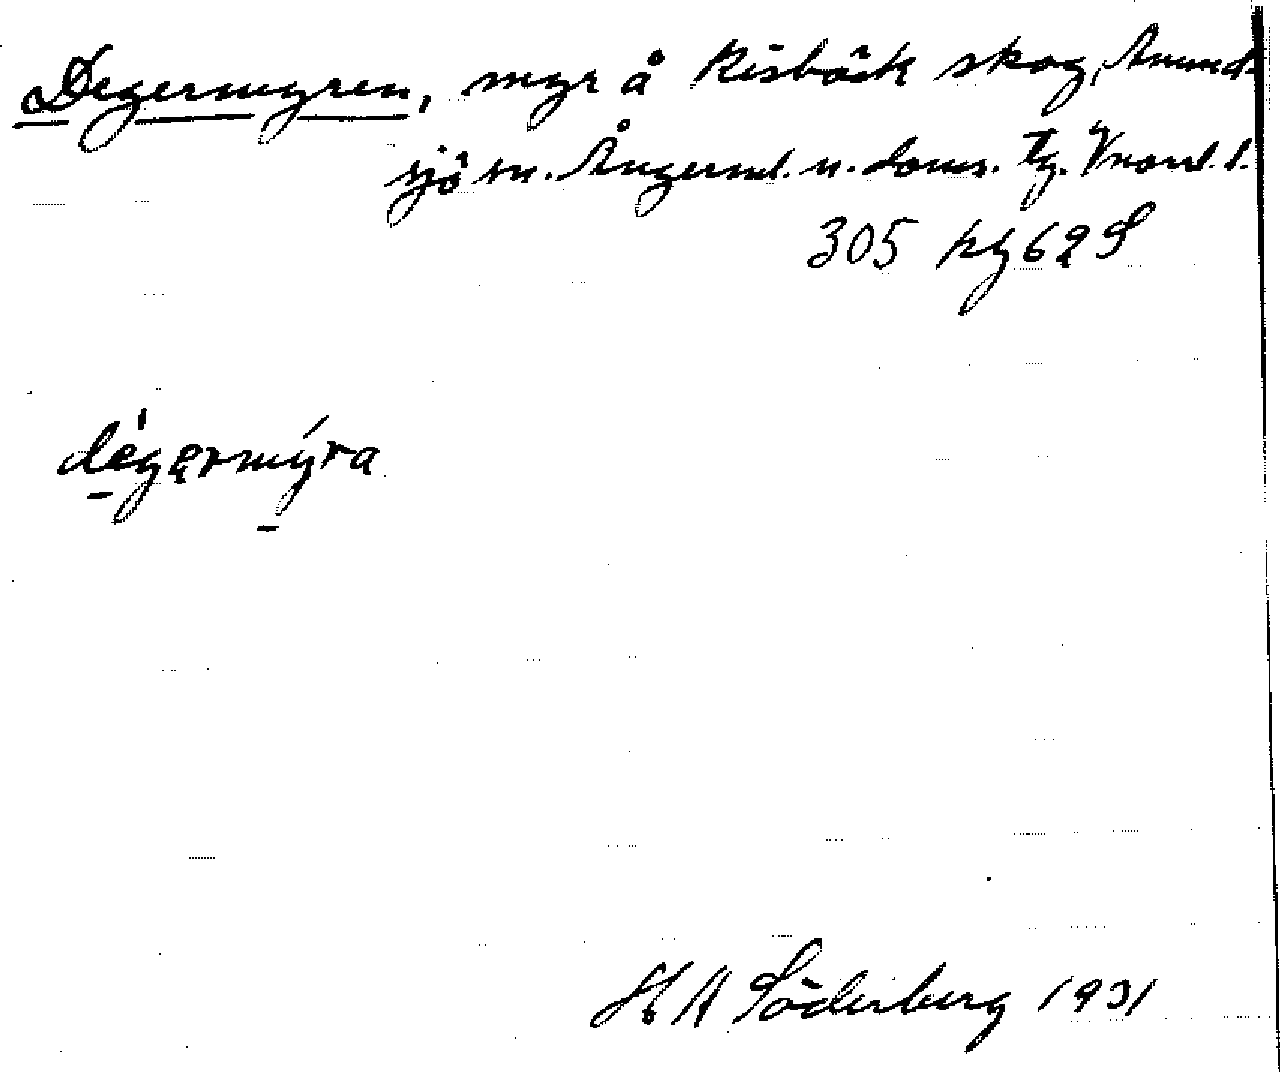 Degermyren, myr å Risbäck skog, Anund-
sjö sn. Ångerml. n. doms. tg. Vnorrl. l.
305 kg 62 S
dégermýra
H A Söderberg 1931